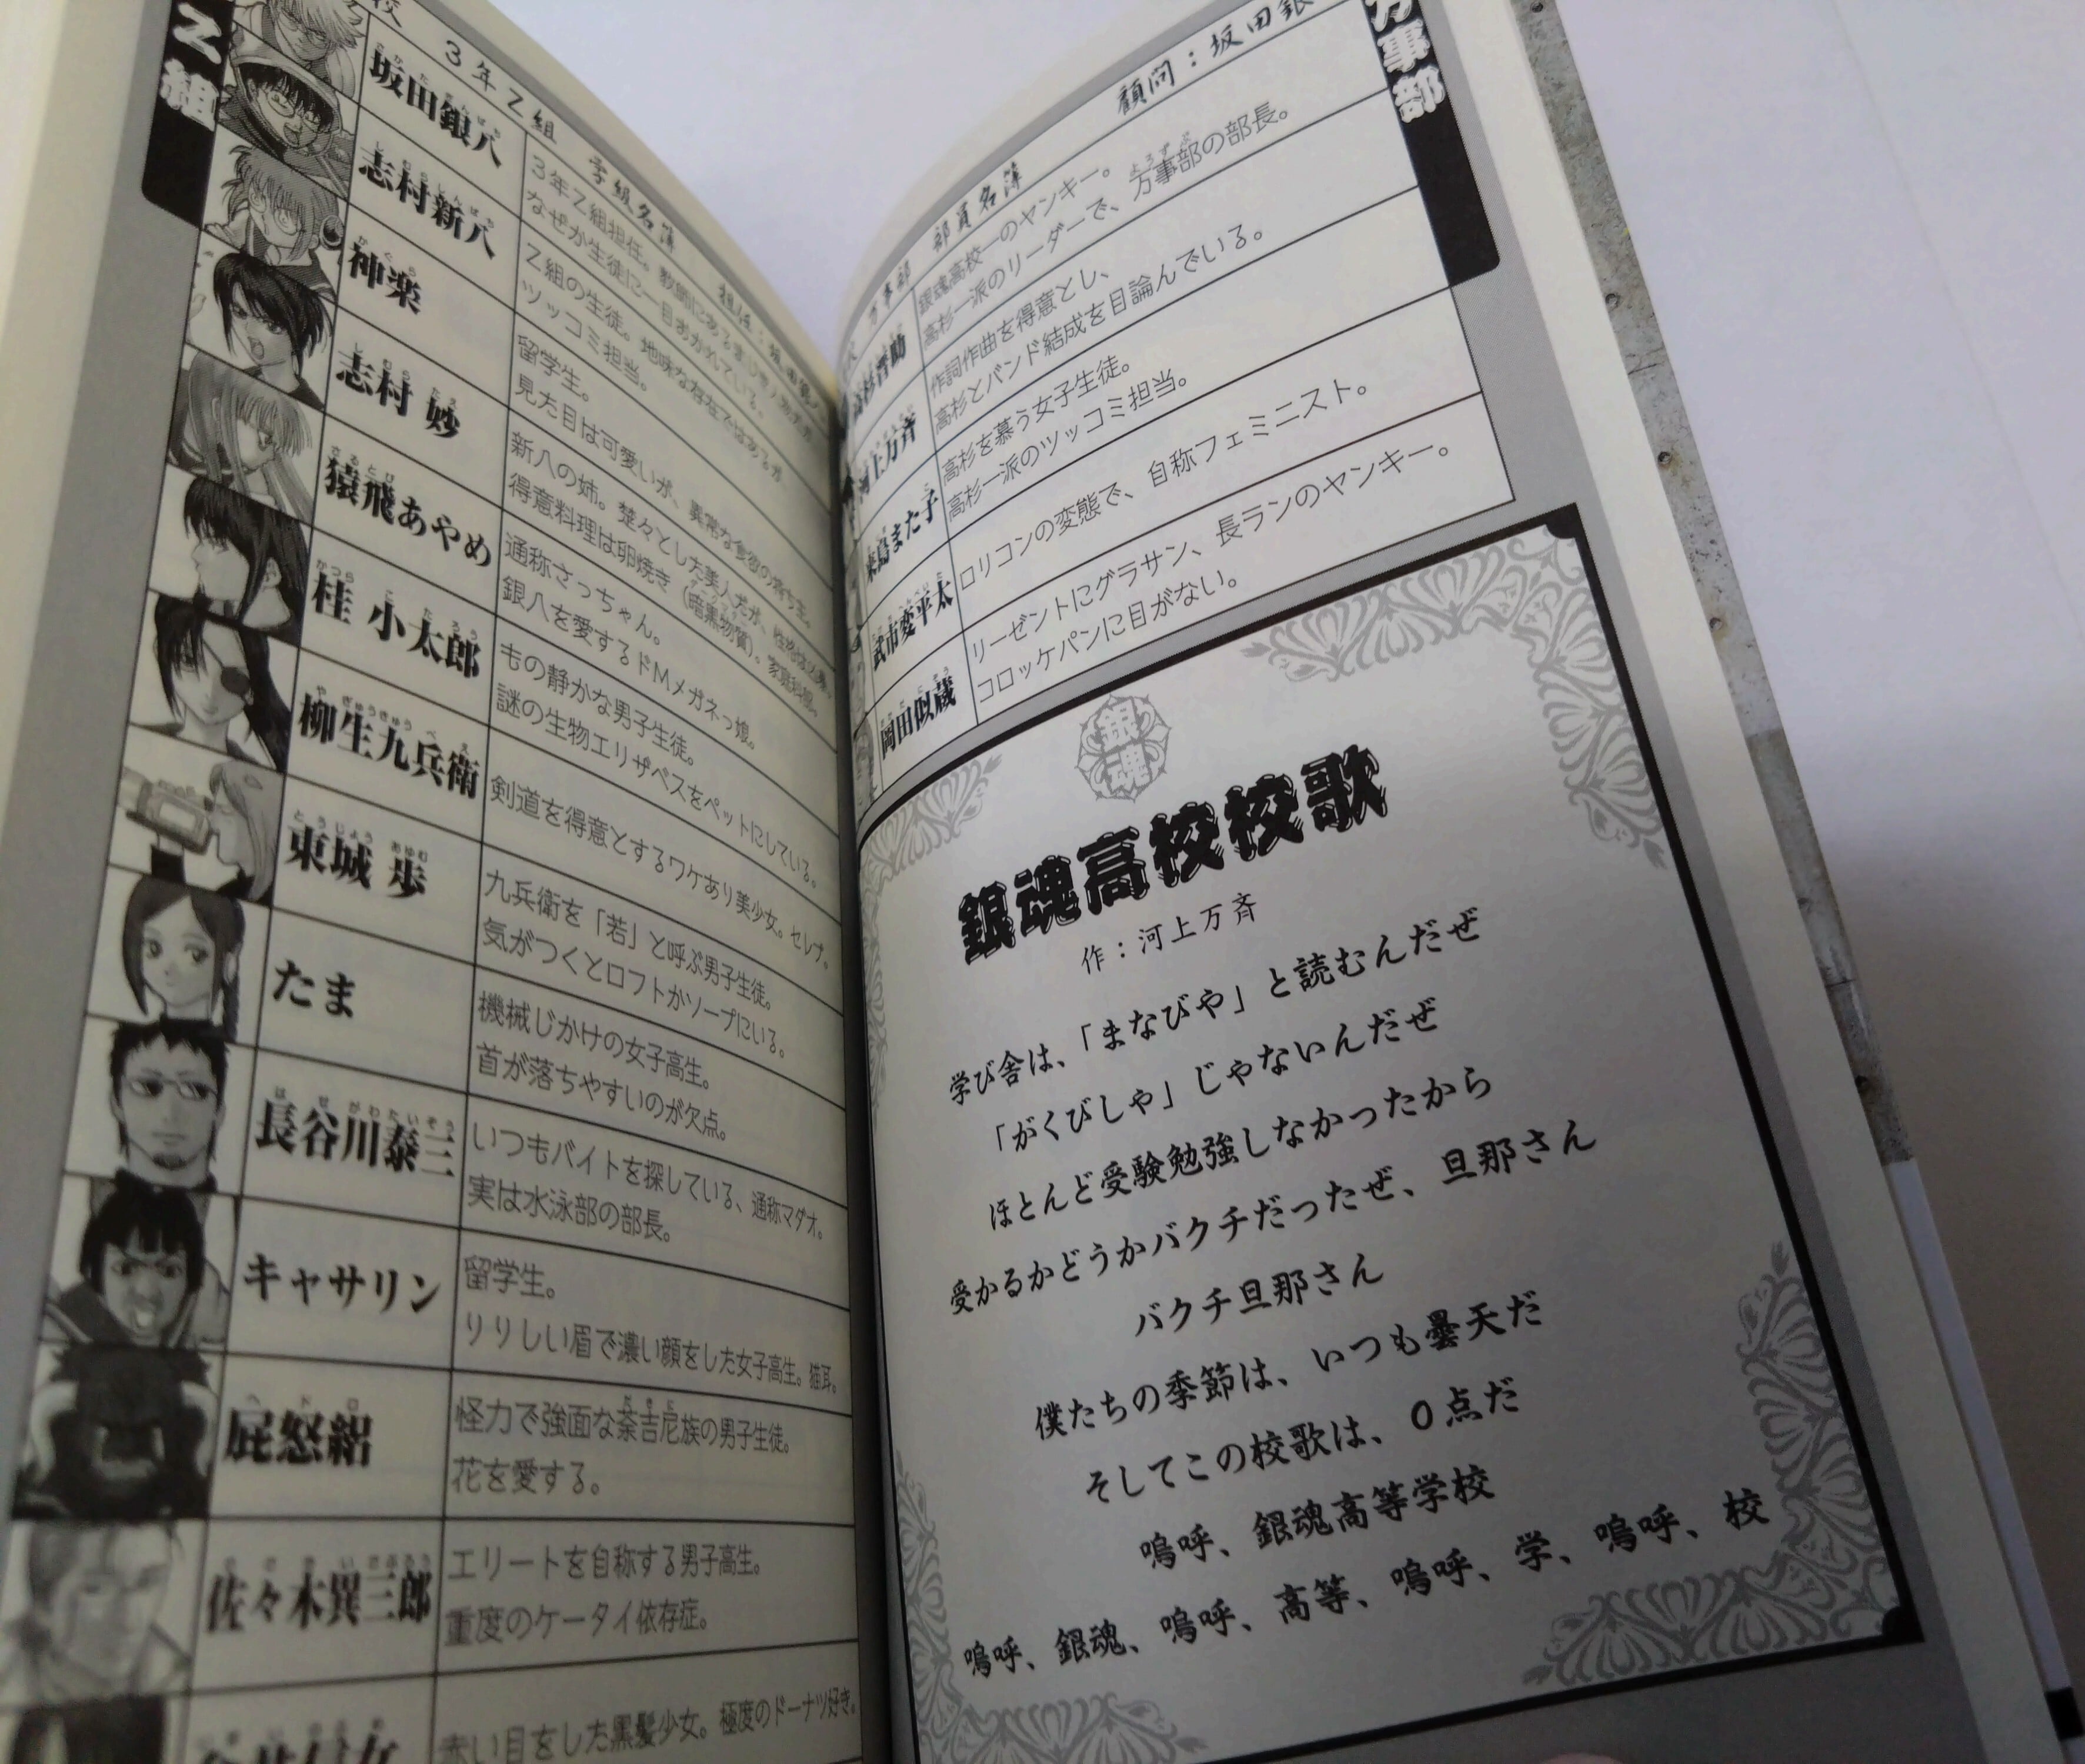 Z組
校 3年Z組 学級名簿 担任：坂田銀八
坂田銀八
3年Z組担任。教師にあるまじき人物だが、
なぜか生徒に一目おかれている。
志村新八
Z組の生徒。地味な存在ではあるが
ツッコミ担当。
神楽
留学生。
見た目は可愛いが、異常な食欲の持ち主。
志村 妙
新八の姉。楚々とした美人だが、性格は凶暴。
得意料理は卵焼き（暗黒物質）。
猿飛あやめ
通称さっちゃん。
銀八を愛するドMメガネっ娘。
桂 小太郎
もの静かな男子生徒。
謎の生物エリザベスをペットにしている。
柳生九兵衛
剣道を得意とするワケあり美少女。セレブ。
東城 歩
九兵衛を「若」と呼ぶ男子生徒。
気がつくとロフトかソープにいる。
たま
機械じかけの女子高生。
首が落ちやすいのが欠点。
長谷川泰三
いつもバイトを探している、通称マダオ。
実は水泳部の部長。
キャサリン
留学生。
りりしい眉で濃い顔をした女子高生。猫耳。
屁怒絽
怪力で強面な荼吉尼族の男子生徒。
花を愛する。
佐々木異三郎
エリートを自称する男子高生。
重度のケータイ依存症。
赤い目をした黒髪少女。極度のドーナツ好き。
万事部
万事部 部員名簿 顧問：坂田銀
高杉晋助
銀魂高校一のヤンキー。
高杉一派のリーダーで、万事部の部長。
河上万斉
作詞作曲を得意とし、
高杉とバンド結成を目論んでいる。
来島また子
高杉を慕う女子生徒。
高杉一派のツッコミ担当。
武市変平太
ロリコンの変態で、自称フェミニスト。
岡田似蔵
リーゼントにグラサン、長ランのヤンキー。
コロッケパンに目がない。
銀魂
銀魂高校校歌
作：河上万斉
学び舎は、「まなびや」と読むんだぜ
「がくびしゃ」じゃないんだぜ
ほとんど受験勉強しなかったから
受かるかどうかバクチだったぜ、旦那さん
バクチ旦那さん
僕たちの季節は、いつも曇天だ
そしてこの校歌は、0点だ
嗚呼、銀魂高等学校
嗚呼、銀魂、嗚呼、高等、嗚呼、学、嗚呼、校